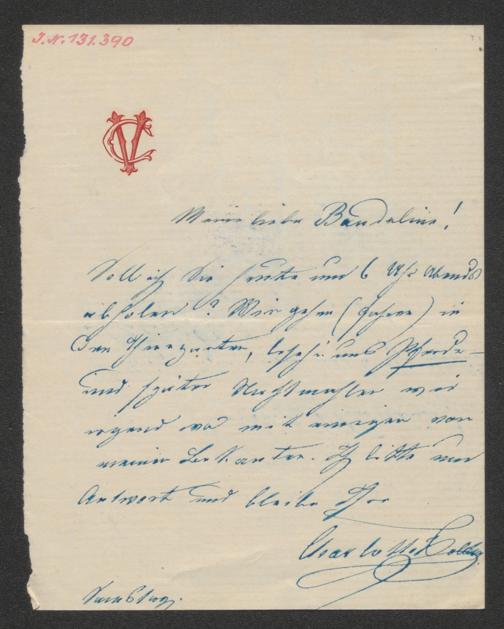 J.N. 131.390
CV
Meine liebe Bandaline!
Soll ich Sie heute um 6 Uhr Abends
abholen? Wir gehen (fahren) in
den Thiergarten, besehn uns Pferde
und später Nachtmahlen wir
irgend wo mit einigen von
meinen Bekannten. Ich bitte um
Antwort und bleibe Ihre
Charlotte
Samstag.